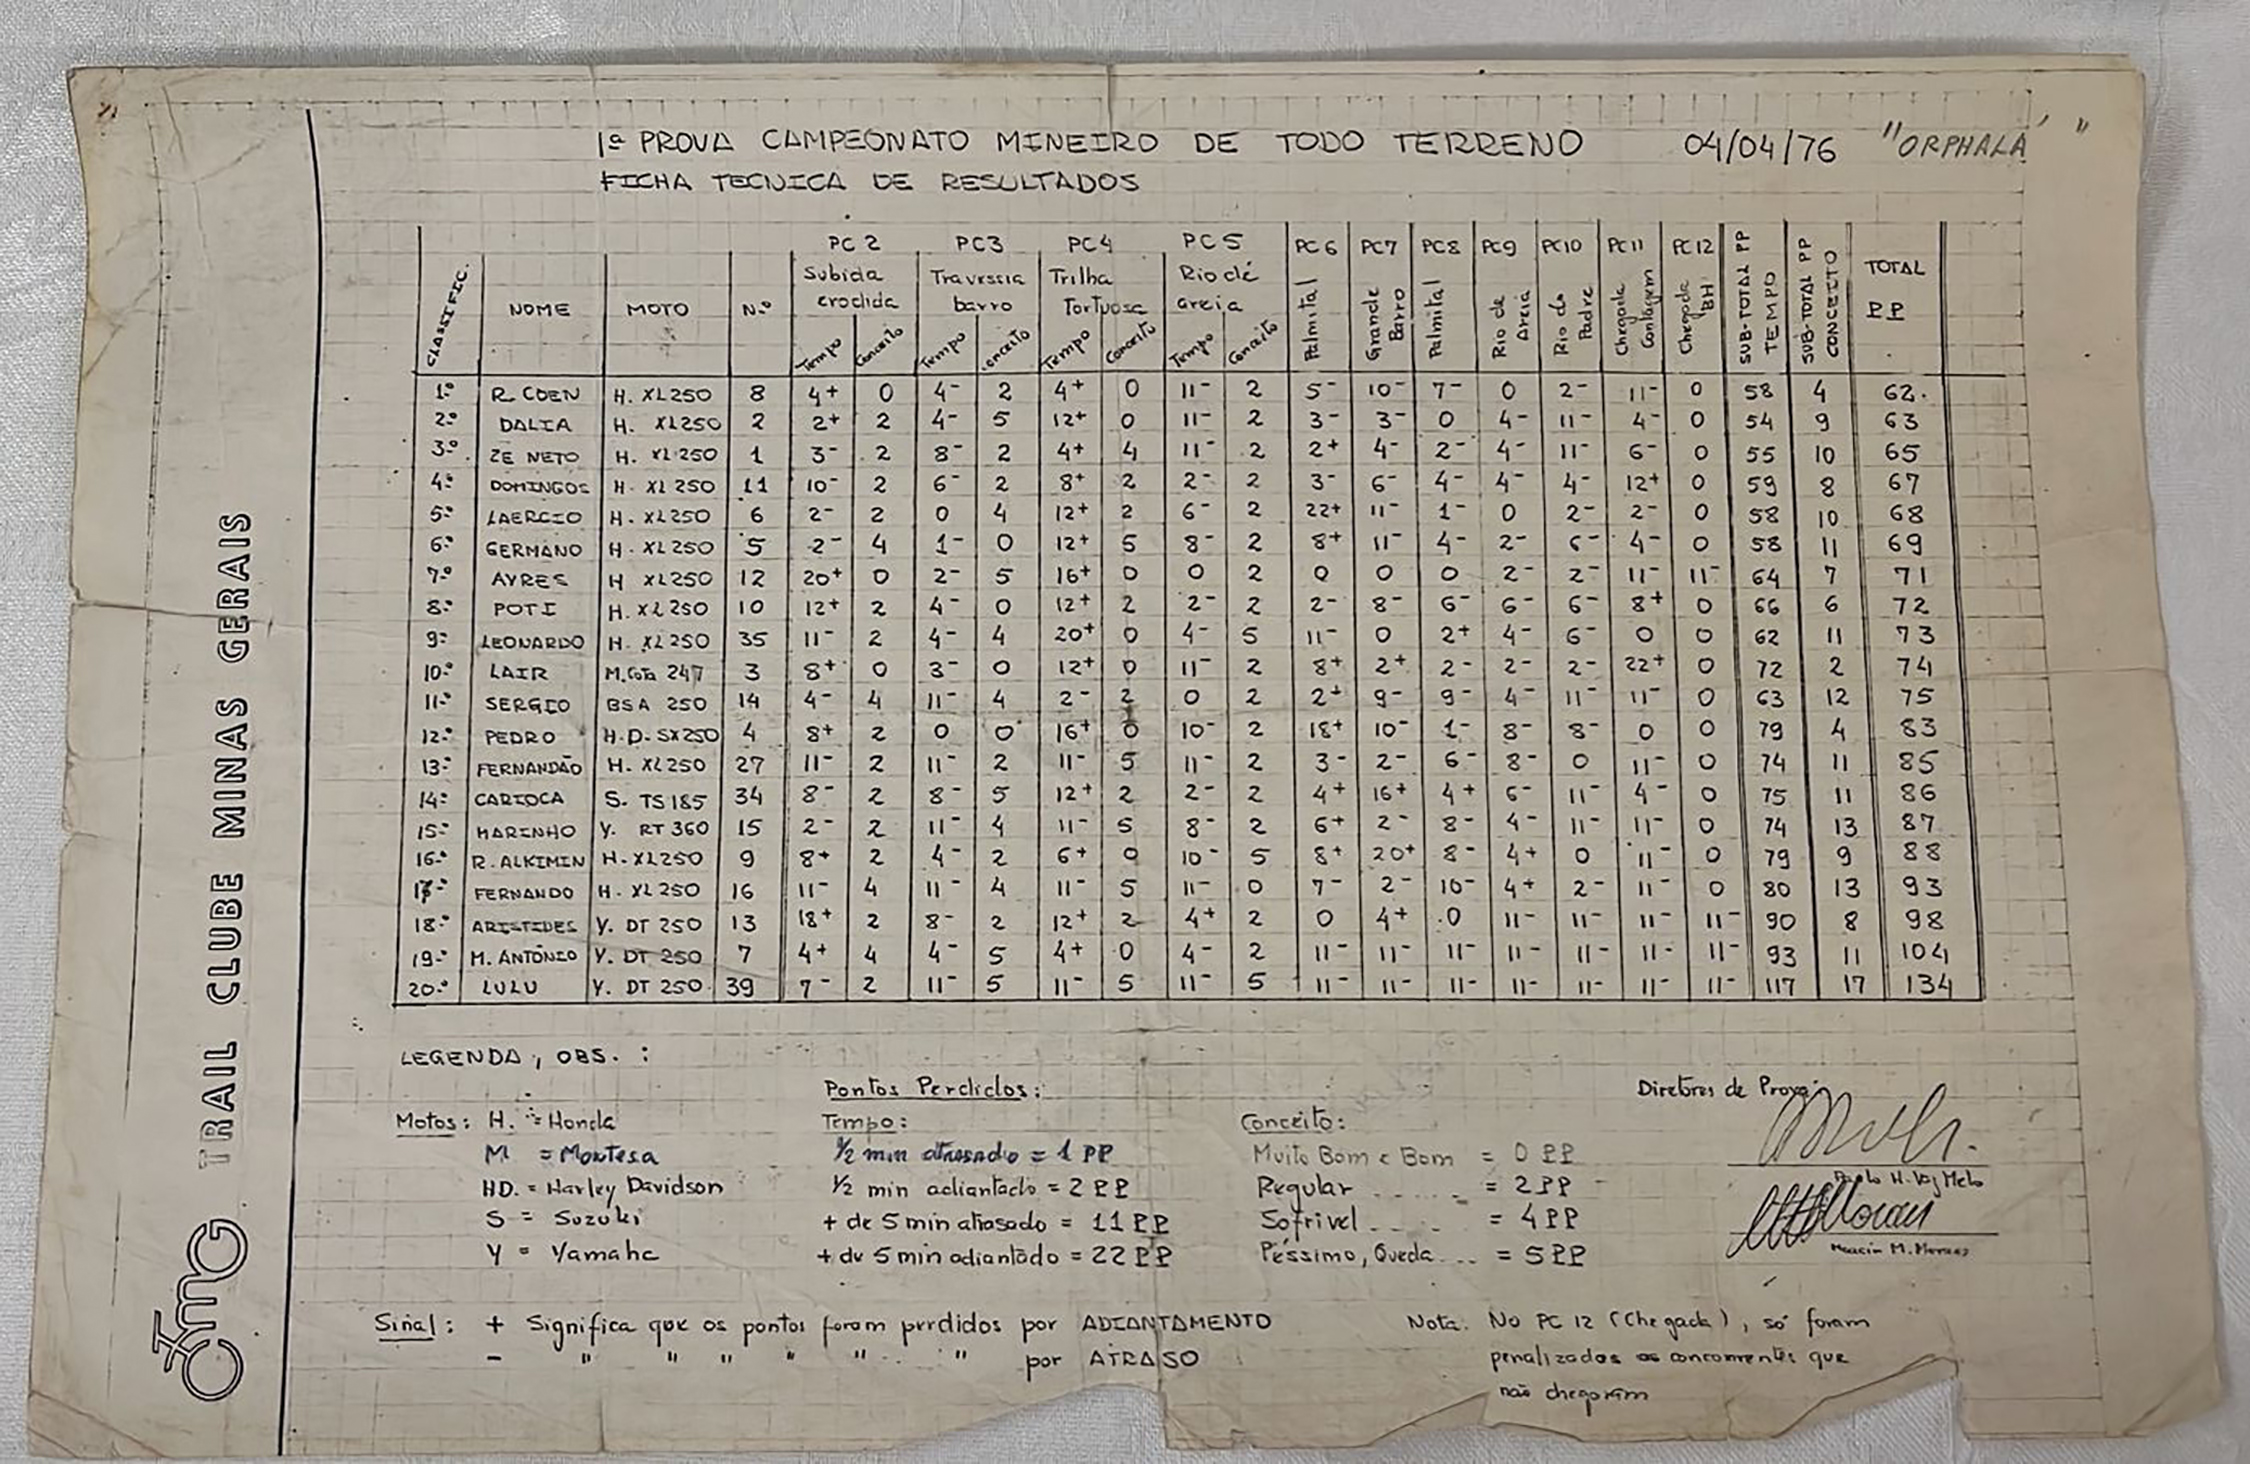 1ª PROVA CAMPEONATO MINEIRO DE TODO TERRENO 04/04/76 "ORPHALÁ"
FICHA TECNICA DE RESULTADOS
TRAIL CLUBE MINAS GERAIS
PC 2 PC3 PC4 PC5 PC6 PC7 PC8 PC9 PC10 PC11 PC12
CLASSIFIC. NOME MOTO N.º Subida erodida Travessia barro Trilha Tortuosa Rio de areia Palmital Grande Barro Palmital Rio de Areia Rio do Padre Chegada Contagem Chegada BH SUB-TOTAL PP TEMPO SUB-TOTAL PP CONCEITO TOTAL PP
Tempo Conceito Tempo Conceito Tempo Conceito Tempo Conceito
1.º R. COEN H. XL250 8 4+ 0 4- 2 4+ 0 11- 2 5- 10- 7- 0 2- 11- 0 58 4 62.
2.º DALIA H. XL250 2 2+ 2 4- 5 12+ 0 11- 2 3- 3- 0 4- 11- 4- 0 54 9 63
3.º ZE NETO H. XL250 1 3- 2 8- 2 4+ 4 11- 2 2+ 4- 2- 4- 11- 6- 0 55 10 65
4.º DOMINGOS H. XL250 11 10- 2 6- 2 8+ 2 2- 2 3- 6- 4- 4- 4- 12+ 0 59 8 67
5.º LAERCIO H. XL250 6 2- 2 0 4 12+ 2 6- 2 22+ 11- 1- 0 2- 2- 0 58 10 68
6.º GERMANO H. XL250 5 2- 4 1- 0 12+ 5 8- 2 8+ 11- 4- 2- 6- 4- 0 58 11 69
7.º AYRES H XL250 12 20+ 0 2- 5 16+ 0 0 2 0 0 0 2- 2- 11- 11- 64 7 71
8.º POTI H. XL250 10 12+ 2 4- 0 12+ 2 2- 2 2- 8- 6- 6- 6- 8+ 0 66 6 72
9.º LEONARDO H. XL250 35 11- 2 4- 4 20+ 0 4- 5 11- 0 2+ 4- 6- 0 0 62 11 73
10.º LAIR M.Cota 247 3 8+ 0 3- 0 12+ 0 11- 2 8+ 2+ 2- 2- 2- 22+ 0 72 2 74
11.º SERGIO BSA 250 14 4- 4 11- 4 2- 2 0 2 2+ 9- 9- 4- 11- 11- 0 63 12 75
12.º PEDRO H.D. SX250 4 8+ 2 0 0 16+ 0 10- 2 18+ 10- 1- 8- 8- 0 0 79 4 83
13.º FERNANDÃO H. XL250 27 11- 2 11- 2 11- 5 11- 2 3- 2- 6- 8- 0 11- 0 74 11 85
14.º CARIOCA S. TS185 34 8- 2 8- 5 12+ 2 2- 2 4+ 16+ 4+ 6- 11- 4- 0 75 11 86
15.º MARINHO Y. RT 360 15 2- 2 11- 4 11- 5 8- 2 6+ 2- 8- 4- 11- 11- 0 74 13 87
16.º R. ALKIMIN H. XL250 9 8+ 2 4- 2 6+ 0 10- 5 8+ 20+ 8- 4+ 0 11- 0 79 9 88
17.º FERNANDO H. XL250 16 11- 4 11- 4 11- 5 11- 0 7- 2- 10- 4+ 2- 11- 0 80 13 93
18.º ARISTIDES Y. DT 250 13 18+ 2 8- 2 12+ 2 4+ 2 0 4+ 0 11- 11- 11- 11- 90 8 98
19.º M. ANTÔNIO Y. DT 250 7 4+ 4 4- 5 4+ 0 4- 2 11- 11- 11- 11- 11- 11- 11- 93 11 104
20.º LULU Y. DT 250 39 7- 2 11- 5 11- 5 11- 5 11- 11- 11- 11- 11- 11- 11- 117 17 134
LEGENDA, OBS. :
Pontos Perdidos: Diretores de Prova:
Motos: H. = Honda Tempo: Conceito:
M = Montesa 1/2 min atrasado = 1 PP Muito Bom e Bom = 0 PP
HD. = Harley Davidson 1/2 min adiantado = 2 PP Regular ..... = 2 PP
Paulo H. Vaz Melo
S = Suzuki + de 5 min atrasado = 11 PP Sofrivel ..... = 4 PP
Y = Yamaha + de 5 min adiantado = 22 PP Péssimo, Queda ... = 5 PP
M.
Sinal: + Significa que os pontos foram perdidos por ADIANTAMENTO
- " " " " " " por ATRASO
Nota: No PC 12 (Chegada), só foram
penalizados os concorrentes que
não chegaram